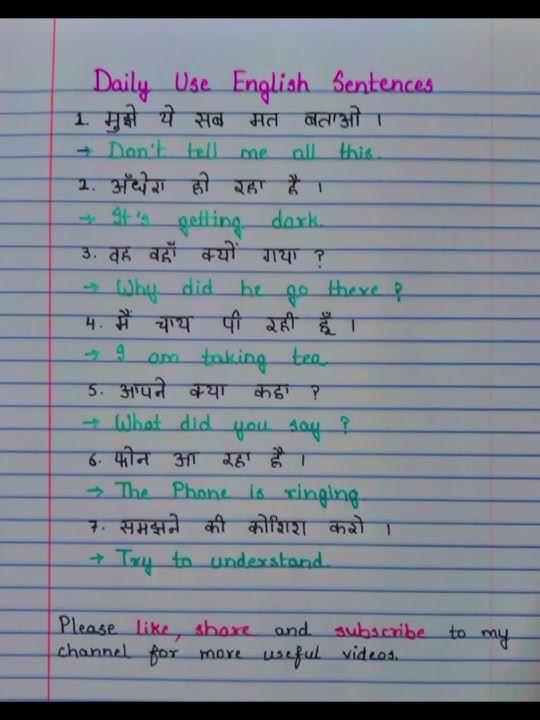 Daily Use English Sentences
1. मुझे ये सब मत बताओ ।
→ Don't tell me all this.
2. अँधेरा हो रहा है ।
→ It's getting dark.
3. वह वहाँ क्यों गया ?
→ Why did he go there ?
4. मैं चाय पी रही हूँ ।
→ I am taking tea
5. आपने क्या कहा ?
→ What did you say ?
6. फोन आ रहा है ।
→ The Phone is ringing.
7. समझने की कोशिश करो ।
→ Try to understand.
Please like, share and subscribe to my
channel for more useful videos.